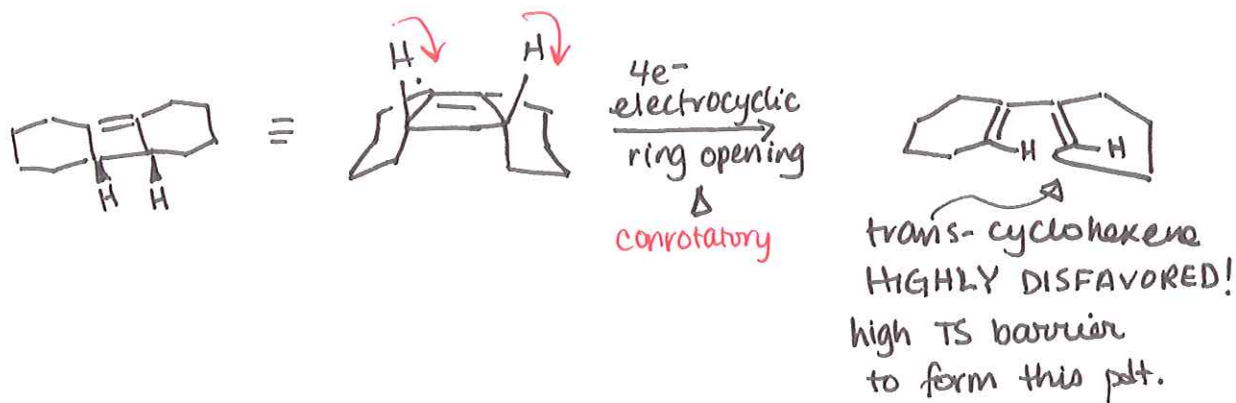 H H
≡
4e⁻
electrocyclic
ring opening
Δ
conrotatory
H H
H H
trans-cyclohexene
HIGHLY DISFAVORED!
high TS barrier
to form this pdt.